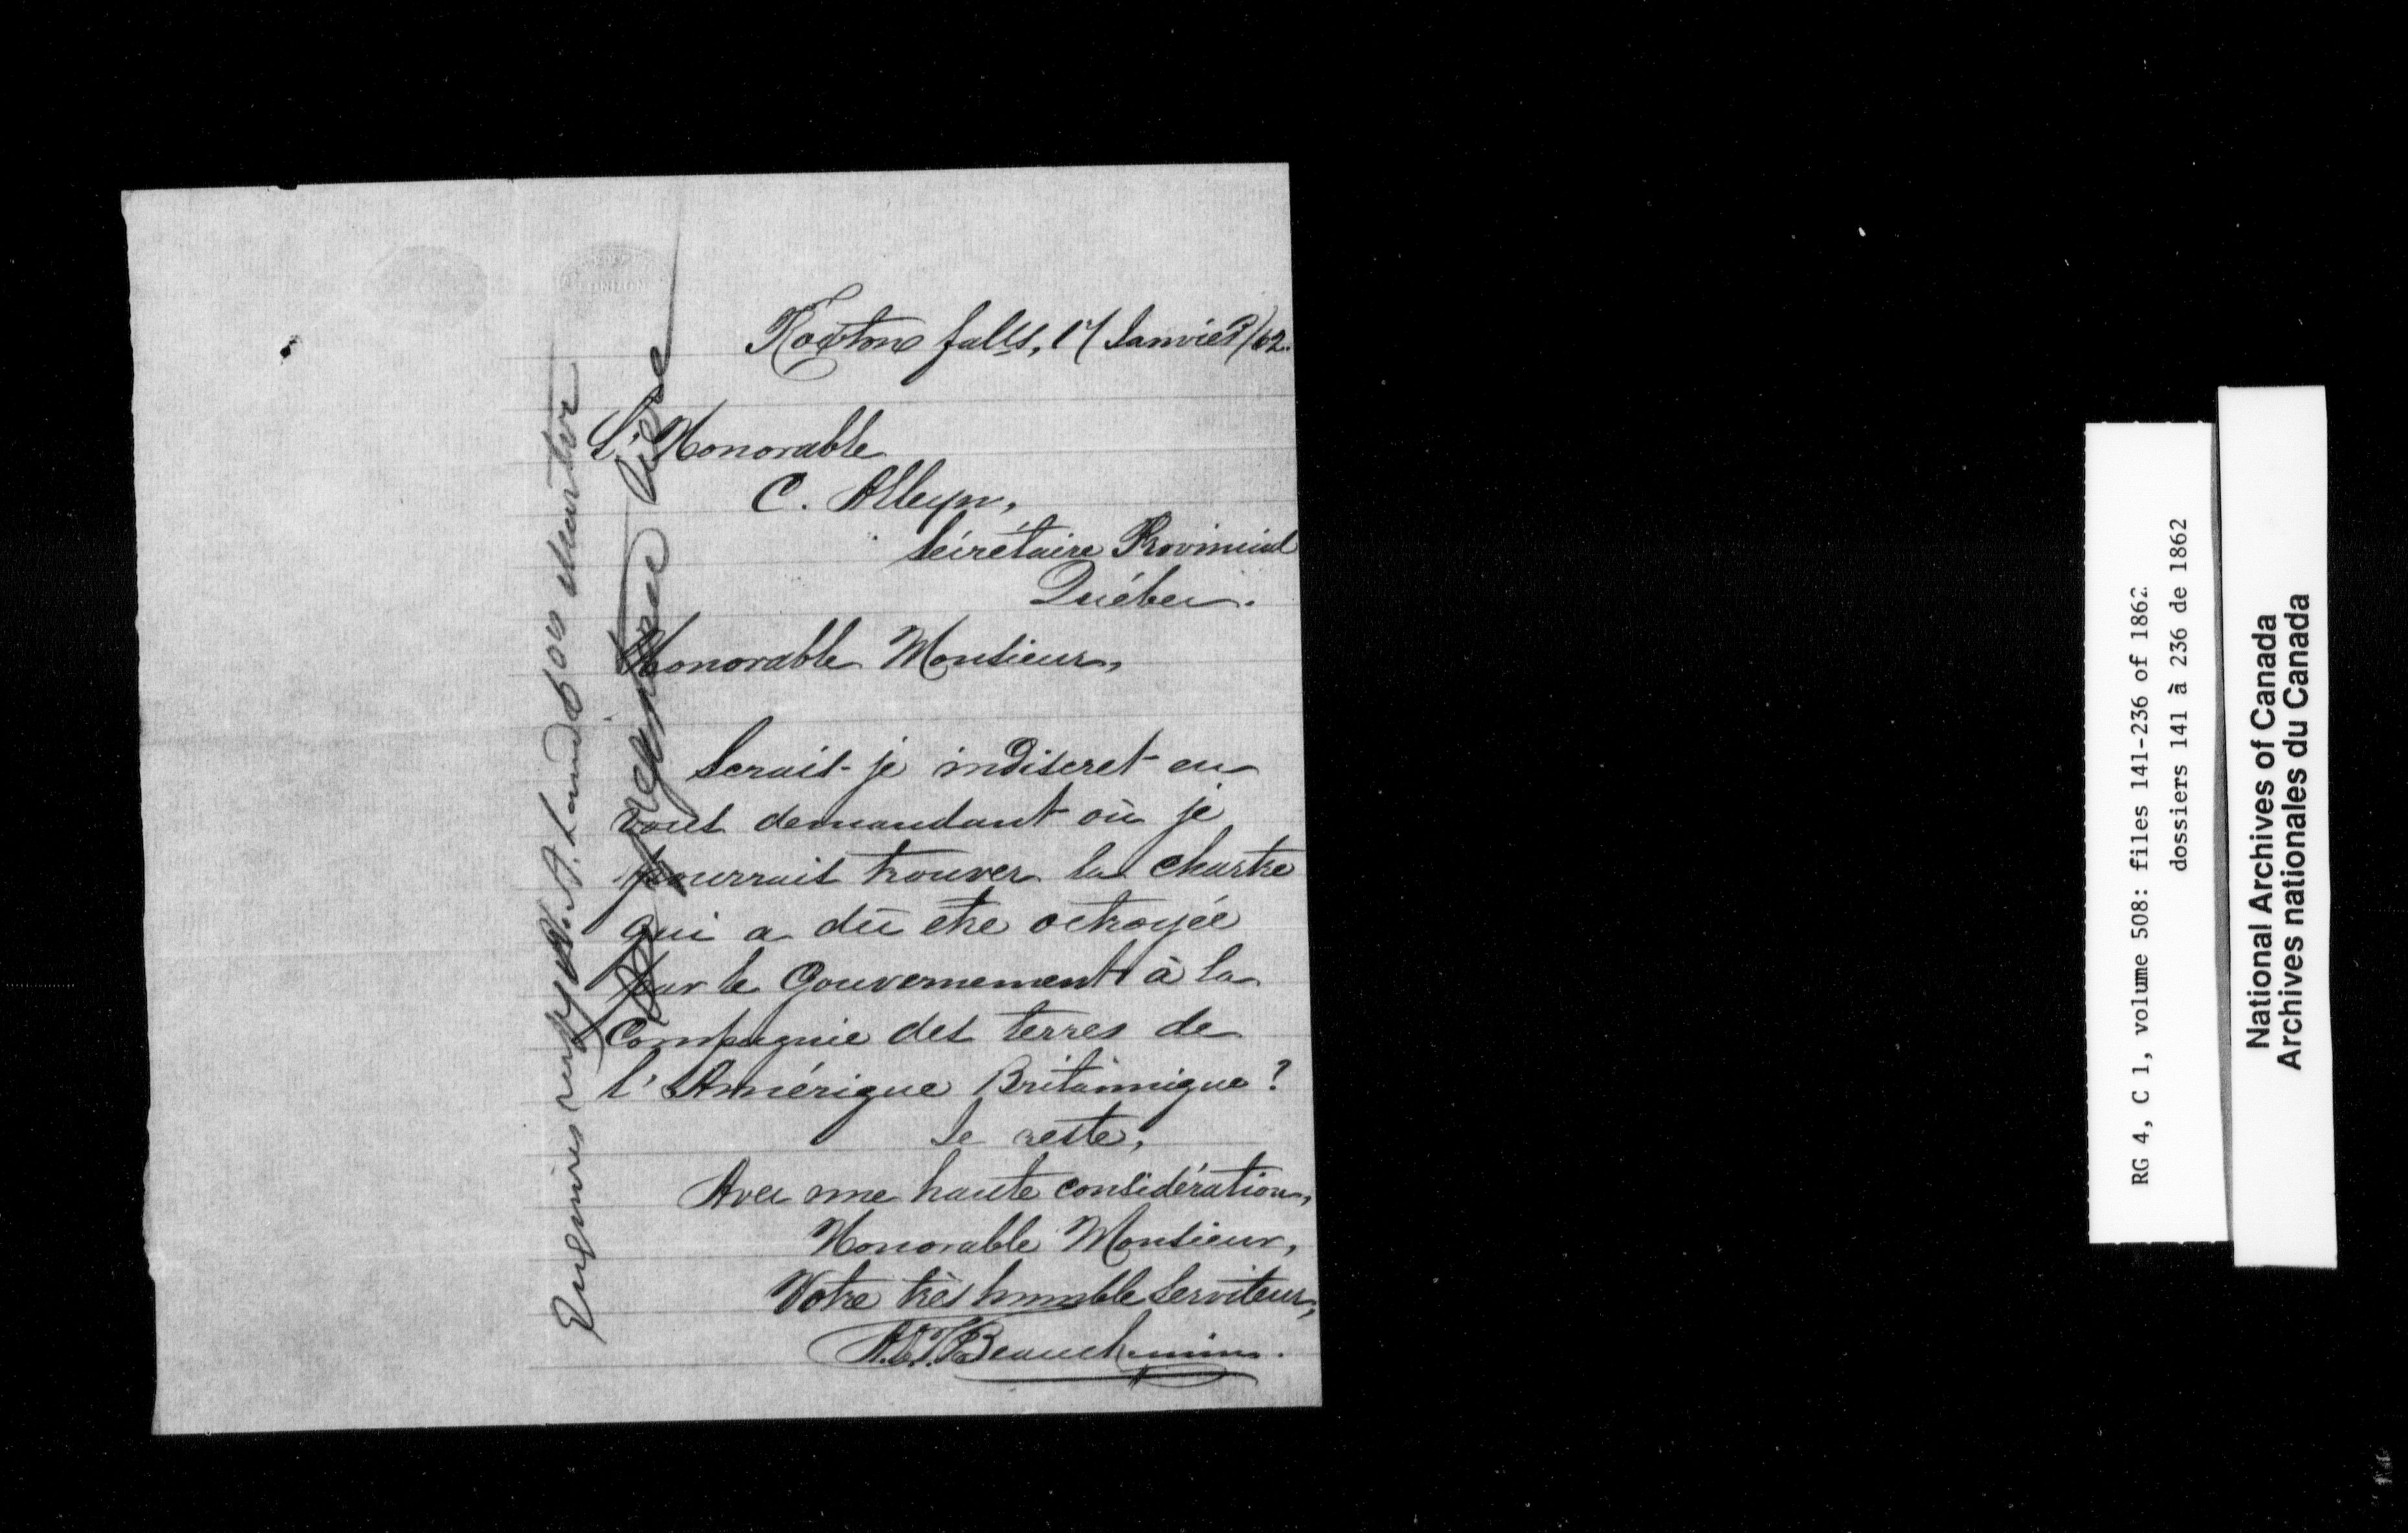 Roxton falls, 17 Janvier/62.
L'Honorable
C. Alleyn,
Sécrétaire Provincial
Québec.
Honorable Monsieur,
Serais-je indiscret en
vous demandant où je
pourrais trouver la chartre
qui a dû etre octroyée
par le Gouvernement à la
Compagnie des terres de
l'Amérique Britannique?
Je reste,
Avec une haute considération,
Honorable Monsieur,
Votre très humble Serviteur,
Beauchemin.
LONDON
RG 4, C 1, volume 508: files 141-236 of 1862
dossiers 141 à 236 de 1862
National Archives of Canada
Archives nationales du Canada